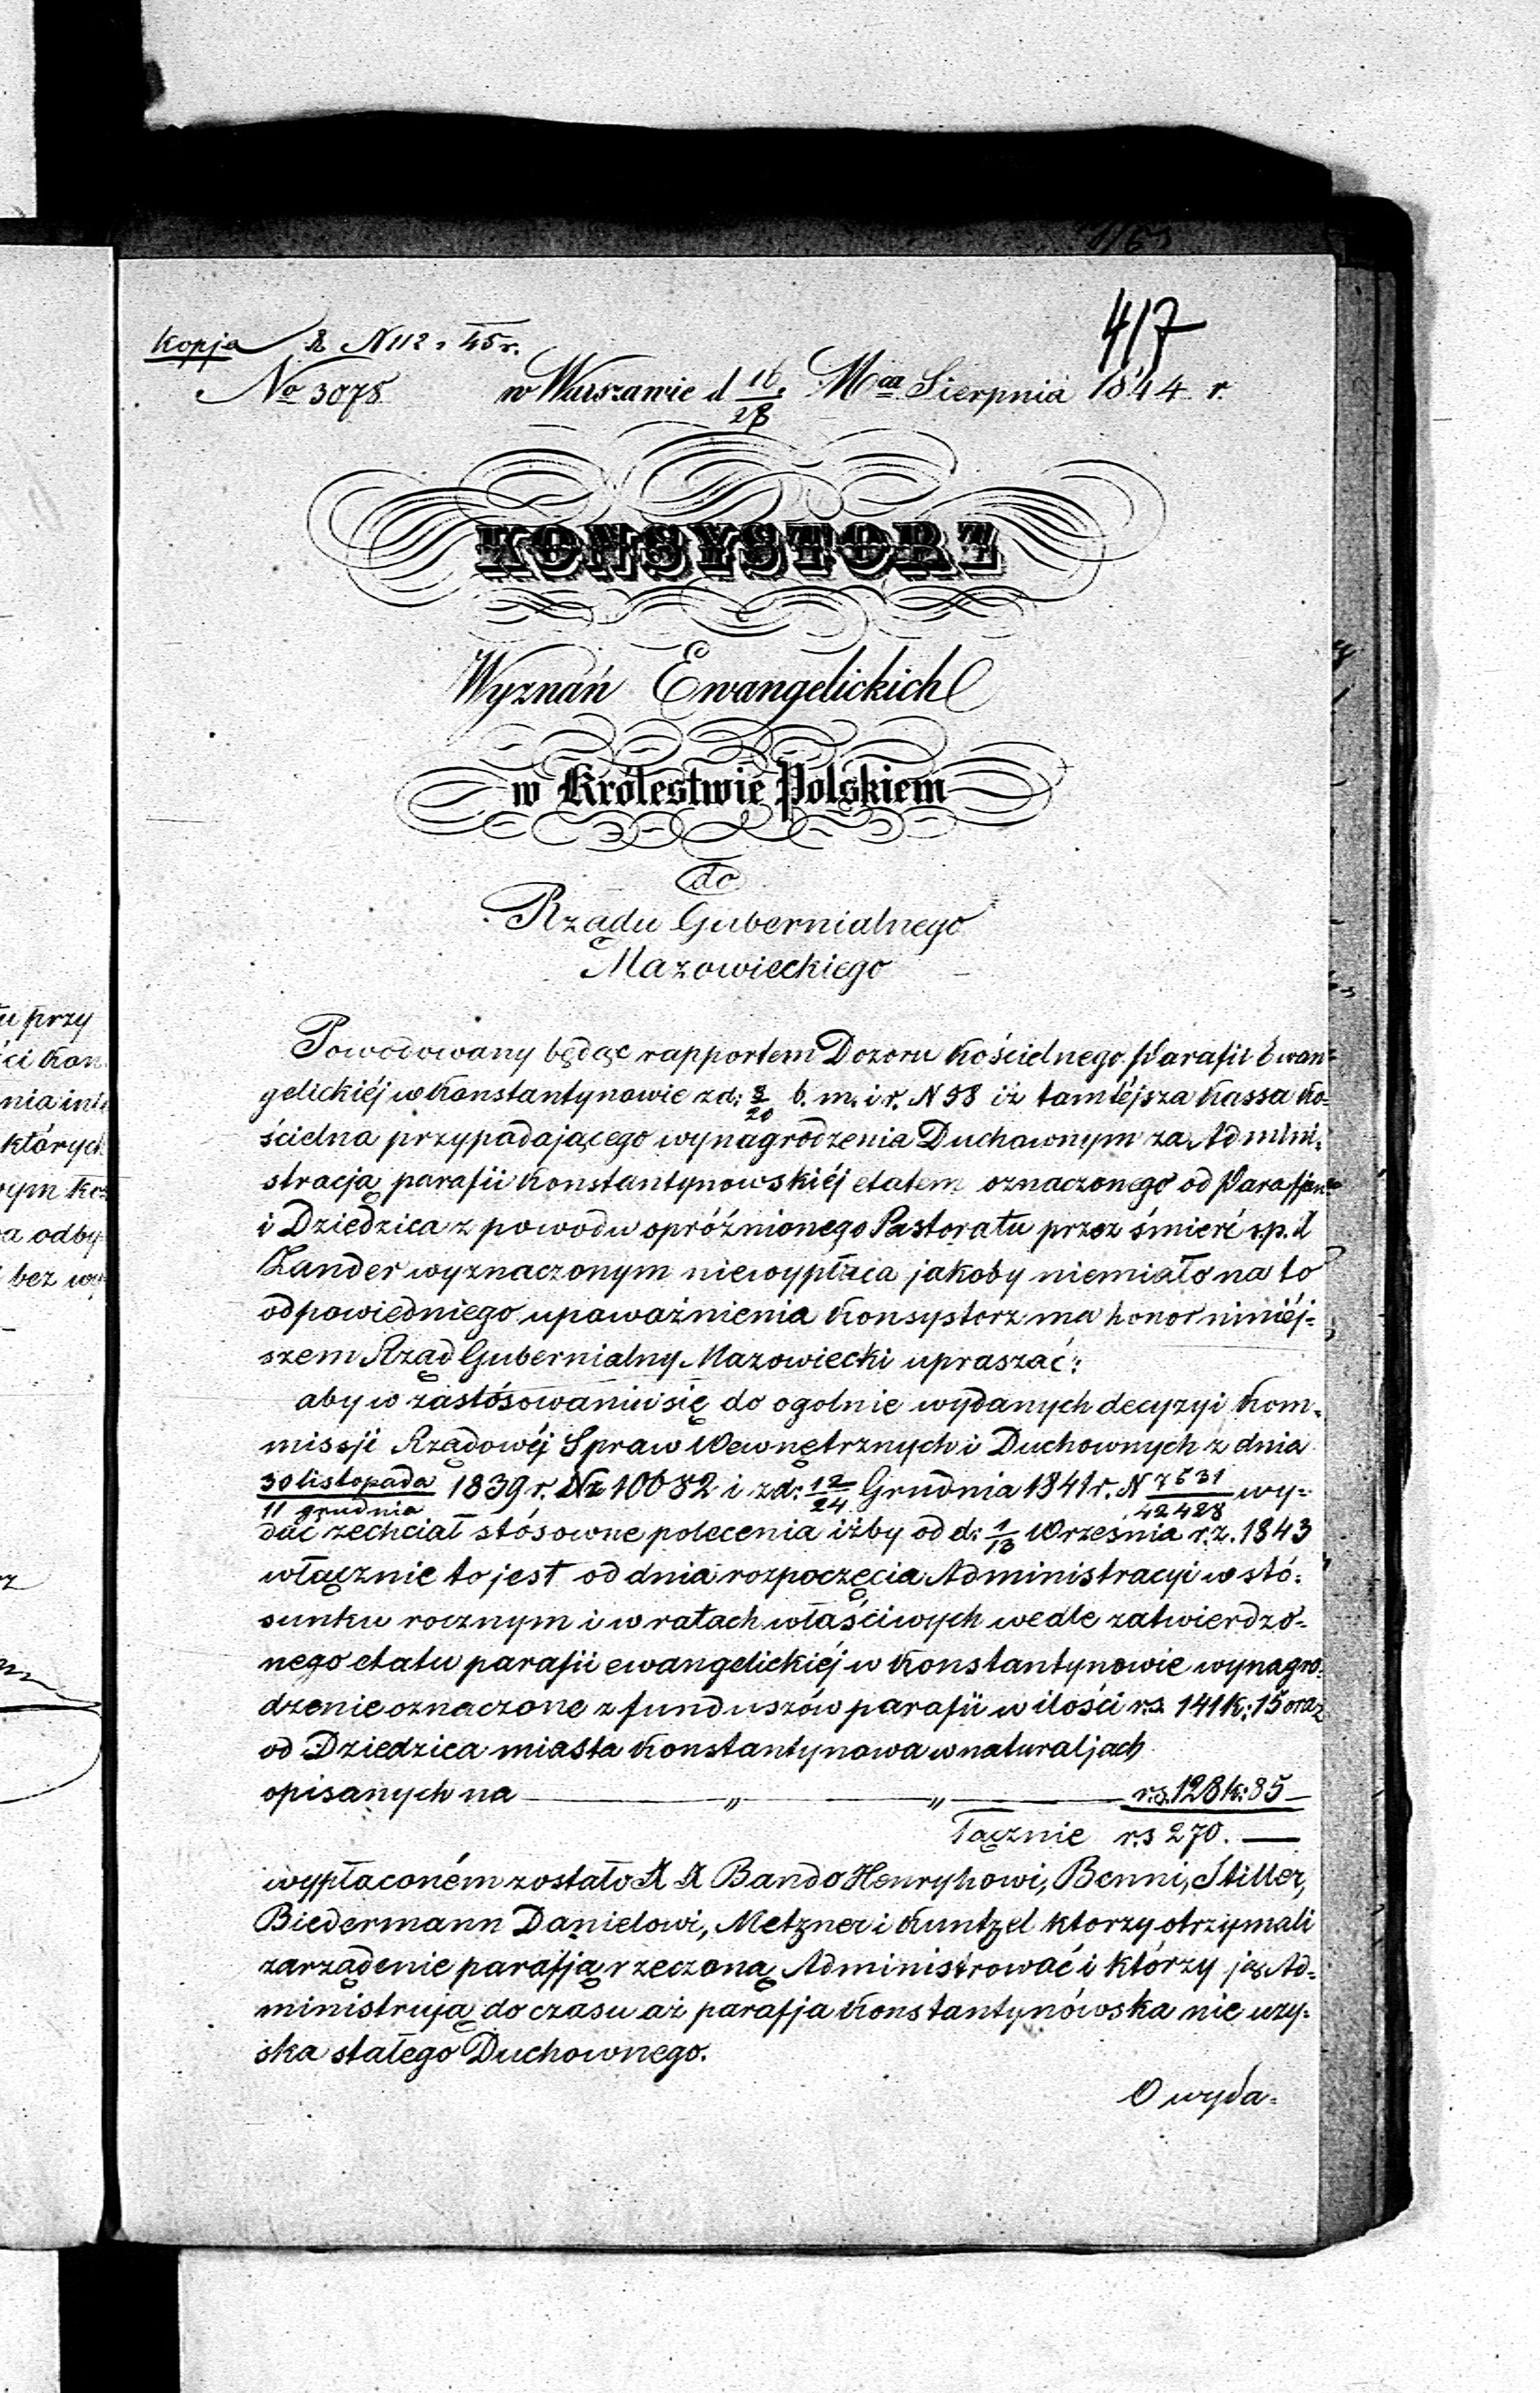 417
Kopja N 112 45 r.
No 3078 w Warszawie d 16/28 Mca Sierpnia 1844 r.
KONSYSTORZ
Wyznań Ewangelickich
w Królestwie Polskiem
do
Rządu Gubernialnego
Mazowieckiego
Powodowany będąc rapportem Dozoru Kościelnego Parafii Ewan=
gelickiéj w Konstantynowie z d: 8/20 b. m. i r. N 98 iż tamtéjsza Kassa Ko=
ścielna przypadającego wynagrodzenia Duchownym za Admini=
stracją parafii Konstantynowskiéj etatem oznaczonego od Parafjan
i Dziedzica z powodu opróżnionego Pastoratu przez śmierć s.p. X
Zander wyznaczonym niewypłaca jakoby niemiało na to
odpowiedniego upoważnienia Konsystorz ma honor niniéj=
szem Rząd Gubernialny Mazowiecki upraszać:
aby w zastósowaniu się do ogolnie wydanych decyzyi Kom=
missji Rządowéj Spraw Wewnętrznych i Duchownych z dnia
30 listopada/11 grudnia 1839 r. Nr 10682 i z d: 12/24 Grudnia 1841 r. N 7631/42428 wy=
dać zechciał stósowne polecenia iżby od d: 1/13 Września r. z. 1843
włącznie to jest od dnia rozpoczęcia Administracyi w stó=
sunku rocznym i w ratach właściwych wedle zatwierdzo=
nego etatu parafii ewangelickiéj w Konstantynowie wynagro=
dzenie oznaczone z funduszów parafii w ilości rs. 141 k: 15 oraz
od Dziedzica miasta Konstantynowa w naturaljach
opisanych na — „ — „ — r.s. 128 k: 85 —
Łącznie r.s 270. —
wypłaconém zostało X X Bando Henrykowi, Benni, Stiller,
Biedermann Danielowi, Metzner i Kuntzel ktorzy otrzymali
zarządenie parafją rzeczoną Administrować i którzy ją Ad=
ministrują do czasu aż parafja Konstantynówska nie uzy=
ska stałego Duchownego.
O wyda=